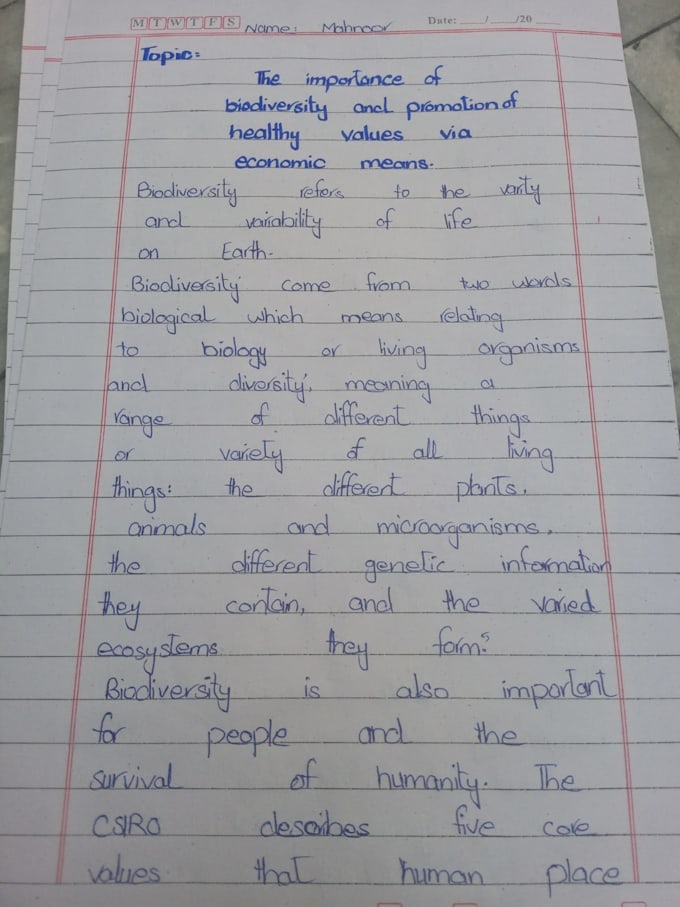 M T W T F S Name: Mahnoor Date: ___/___/20___
Topic:
The importance of
biodiversity and promotion of
healthy values via
economic means.
Biodiversity refers to the varity
and vairability of life
on Earth.
Biodiversity come from two words
biological which means relating
to biology or living organisms
and diversity, meaning a
range of different things
or variety of all living
things: the different plants,
animals and microorganisms,
the different genetic information
they contain, and the varied
ecosystems they form.
Biodiversity is also important
for people and the
survival of humanity. The
CSIRO describes five core
values that human place